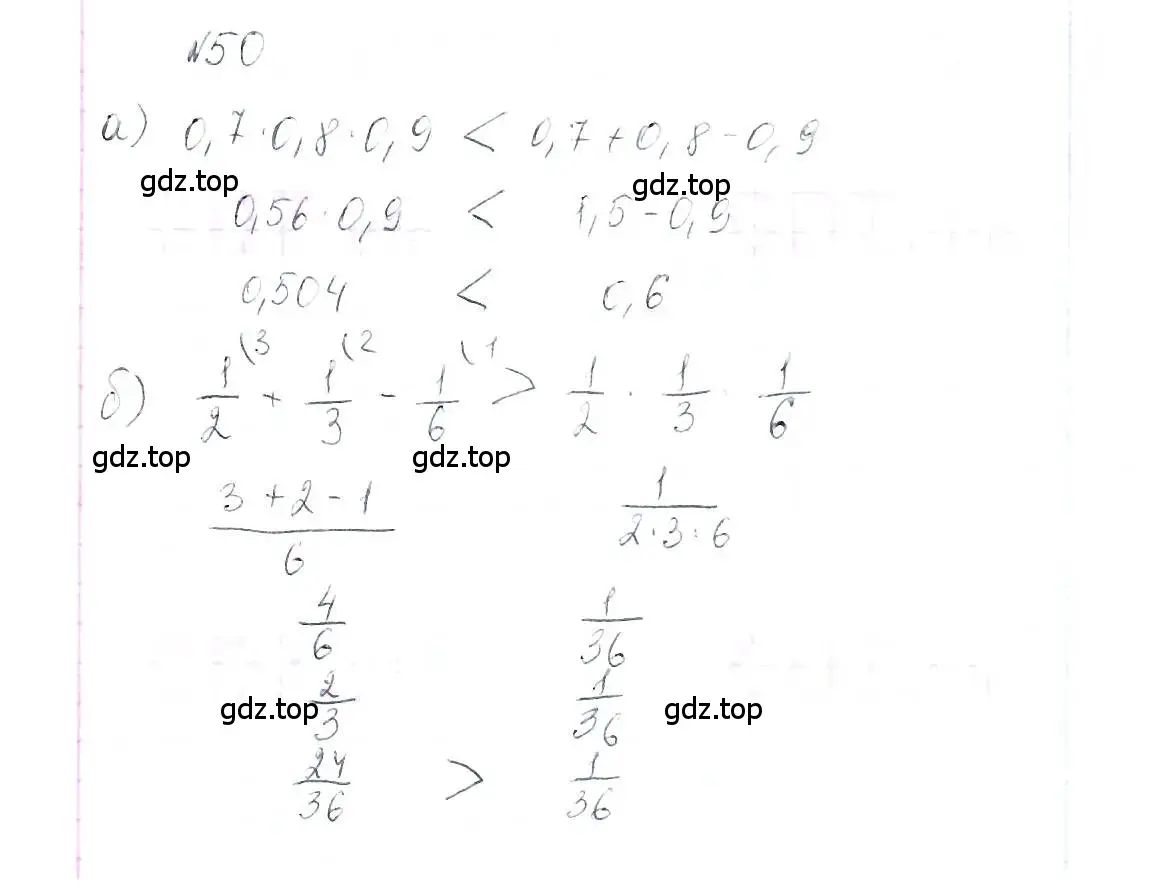 №50
а) 0,7·0,8·0,9 < 0,7+0,8-0,9
gdz.top gdz.top
0,56·0,9 < 1,5-0,9
0,504 < 0,6
б) 1/2 \3 + 1/3 \2 - 1/6 \1 > 1/2 · 1/3 · 1/6
gdz.top gdz.top
3+2-1/6 1/2·3·6
4/6 1/36
2/3 1/36
gdz.top gdz.top
24/36 > 1/36